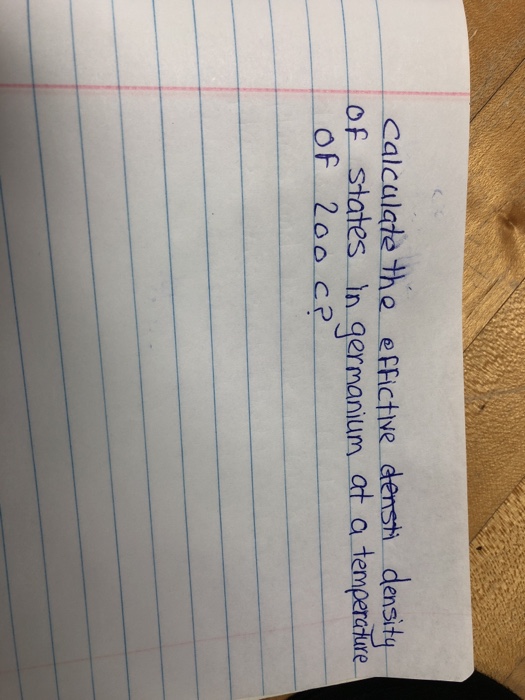 Calculate the effictive densti density
of states in germanium at a temperature
of 200 C?